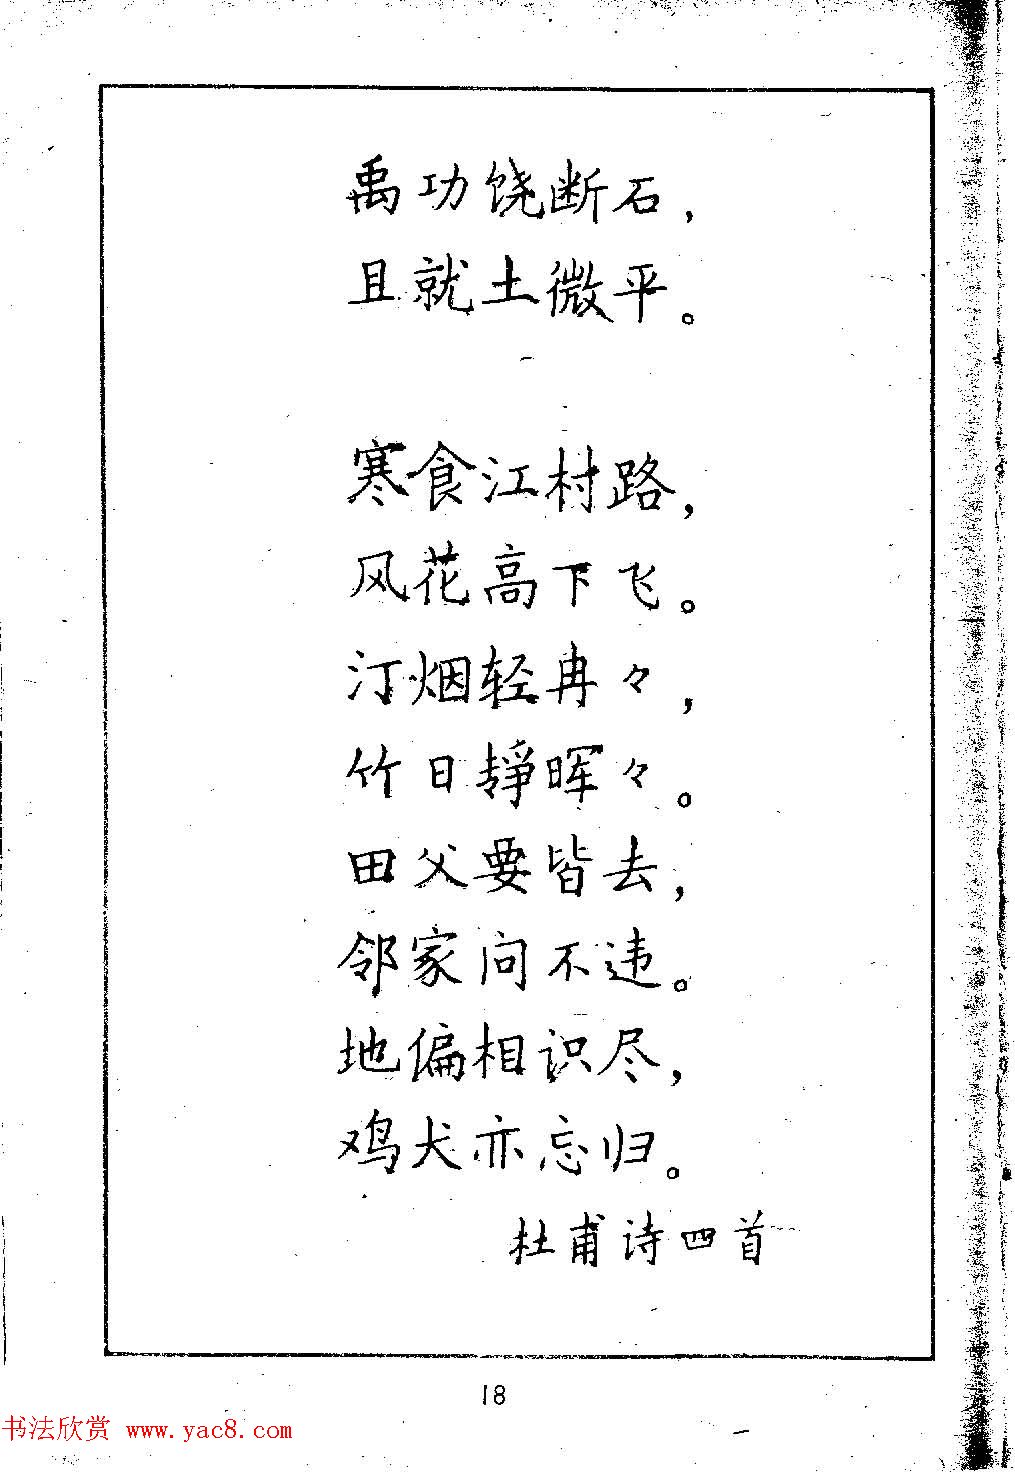 禹功饶断石，
且就土微平。
寒食江村路，
风花高下飞。
汀烟轻冉々，
竹日静晖々。
田父要皆去，
邻家问不违。
地偏相识尽，
鸡犬亦忘归。
杜甫诗四首
18
书法欣赏 www.yac8.com